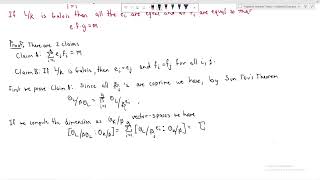 i=1
If L/K is Galois then all the e_i are equal and all f_i are equal so that
e·f·g = m
Proof: There are 2 claims
Claim A: Σ e_i f_i = m
Claim B: If L/K is Galois, then e_i = e_j and f_i = f_j for all i, j.
First we prove Claim A: Since all p_i^{e_i} are coprime we have, by Sun Tzu's Theorem
O_L/pO_L = ∏_{i=1}^{g} O_L/p_i^{e_i}
If we compute the dimension as O_K/p vector-spaces we have
[O_L/pO_L : O_K/p] = Σ_{i=1}^{g} [O_L/p_i^{e_i} : O_K/p] =